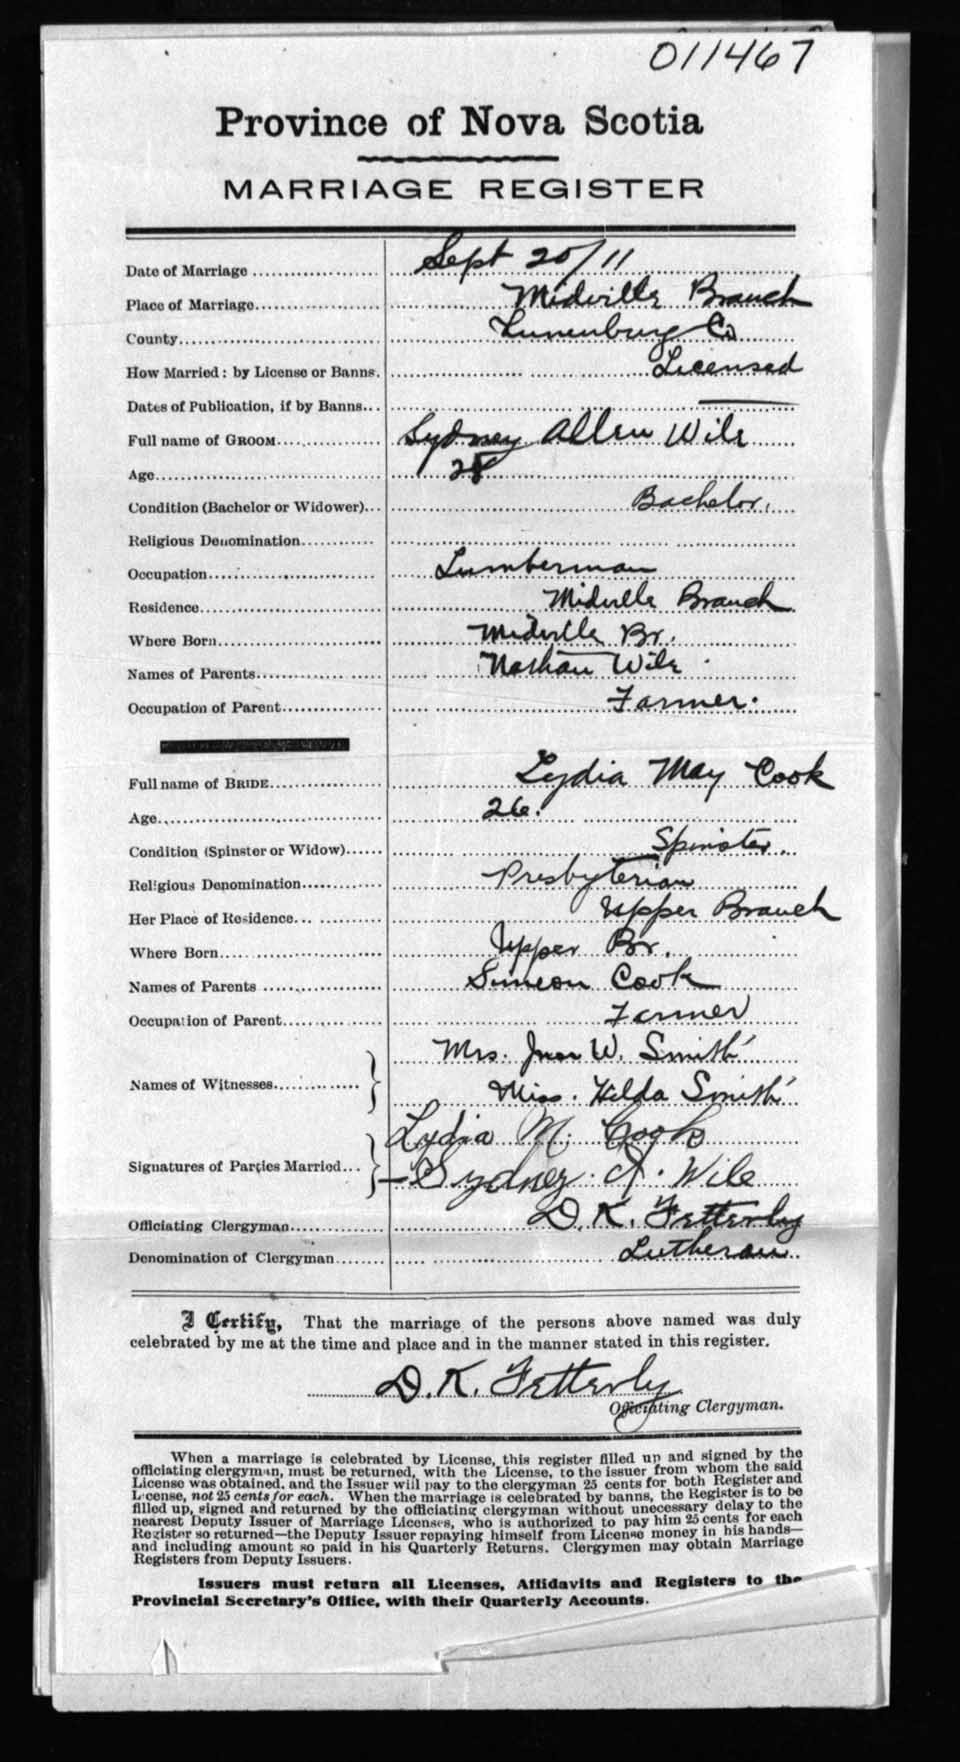 011467
Province of Nova Scotia
MARRIAGE REGISTER
Date of Marriage Sept 20/11
Place of Marriage Midville Branch
County Lunenburg Co
How Married: by License or Banns. Licensed
Dates of Publication, if by Banns
Full name of GROOM Sydney Allen Wile
Age 28
Condition (Bachelor or Widower) Bachelor.
Religious Denomination
Occupation Lumberman
Residence Midville Branch
Where Born Midville Br.
Names of Parents Nathan Wile
Occupation of Parent Farmer.
Full name of BRIDE Lydia May Cook
Age 26.
Condition (Spinster or Widow) Spinster.
Religious Denomination Presbyterian
Her Place of Residence Upper Branch
Where Born Upper Br.
Names of Parents Simeon Cook
Occupation of Parent Farmer
Mrs. W. Smith
Names of Witnesses
Miss. Hilda Smith
Lydia M. Cook
Signatures of Parties Married
Sydney A. Wile
Officiating Clergyman D. K. Fetterly
Denomination of Clergyman Lutheran
I Certify, That the marriage of the persons above named was duly
celebrated by me at the time and place and in the manner stated in this register.
D. K. Fetterly
Officiating Clergyman.
When a marriage is celebrated by License, this register filled up and signed by the
officiating clergyman, must be returned, with the License, to the issuer from whom the said
License was obtained, and the Issuer will pay to the clergyman 25 cents for both Register and
License, not 25 cents for each. When the marriage is celebrated by banns, the Register is to be
filled up, signed and returned by the officiating clergyman without unnecessary delay to the
nearest Deputy Issuer of Marriage Licenses, who is authorized to pay him 25 cents for each
Register so returned—the Deputy Issuer repaying himself from License money in his hands—
and including amount so paid in his Quarterly Returns. Clergymen may obtain Marriage
Registers from Deputy Issuers.
Issuers must return all Licenses, Affidavits and Registers to the
Provincial Secretary's Office, with their Quarterly Accounts.